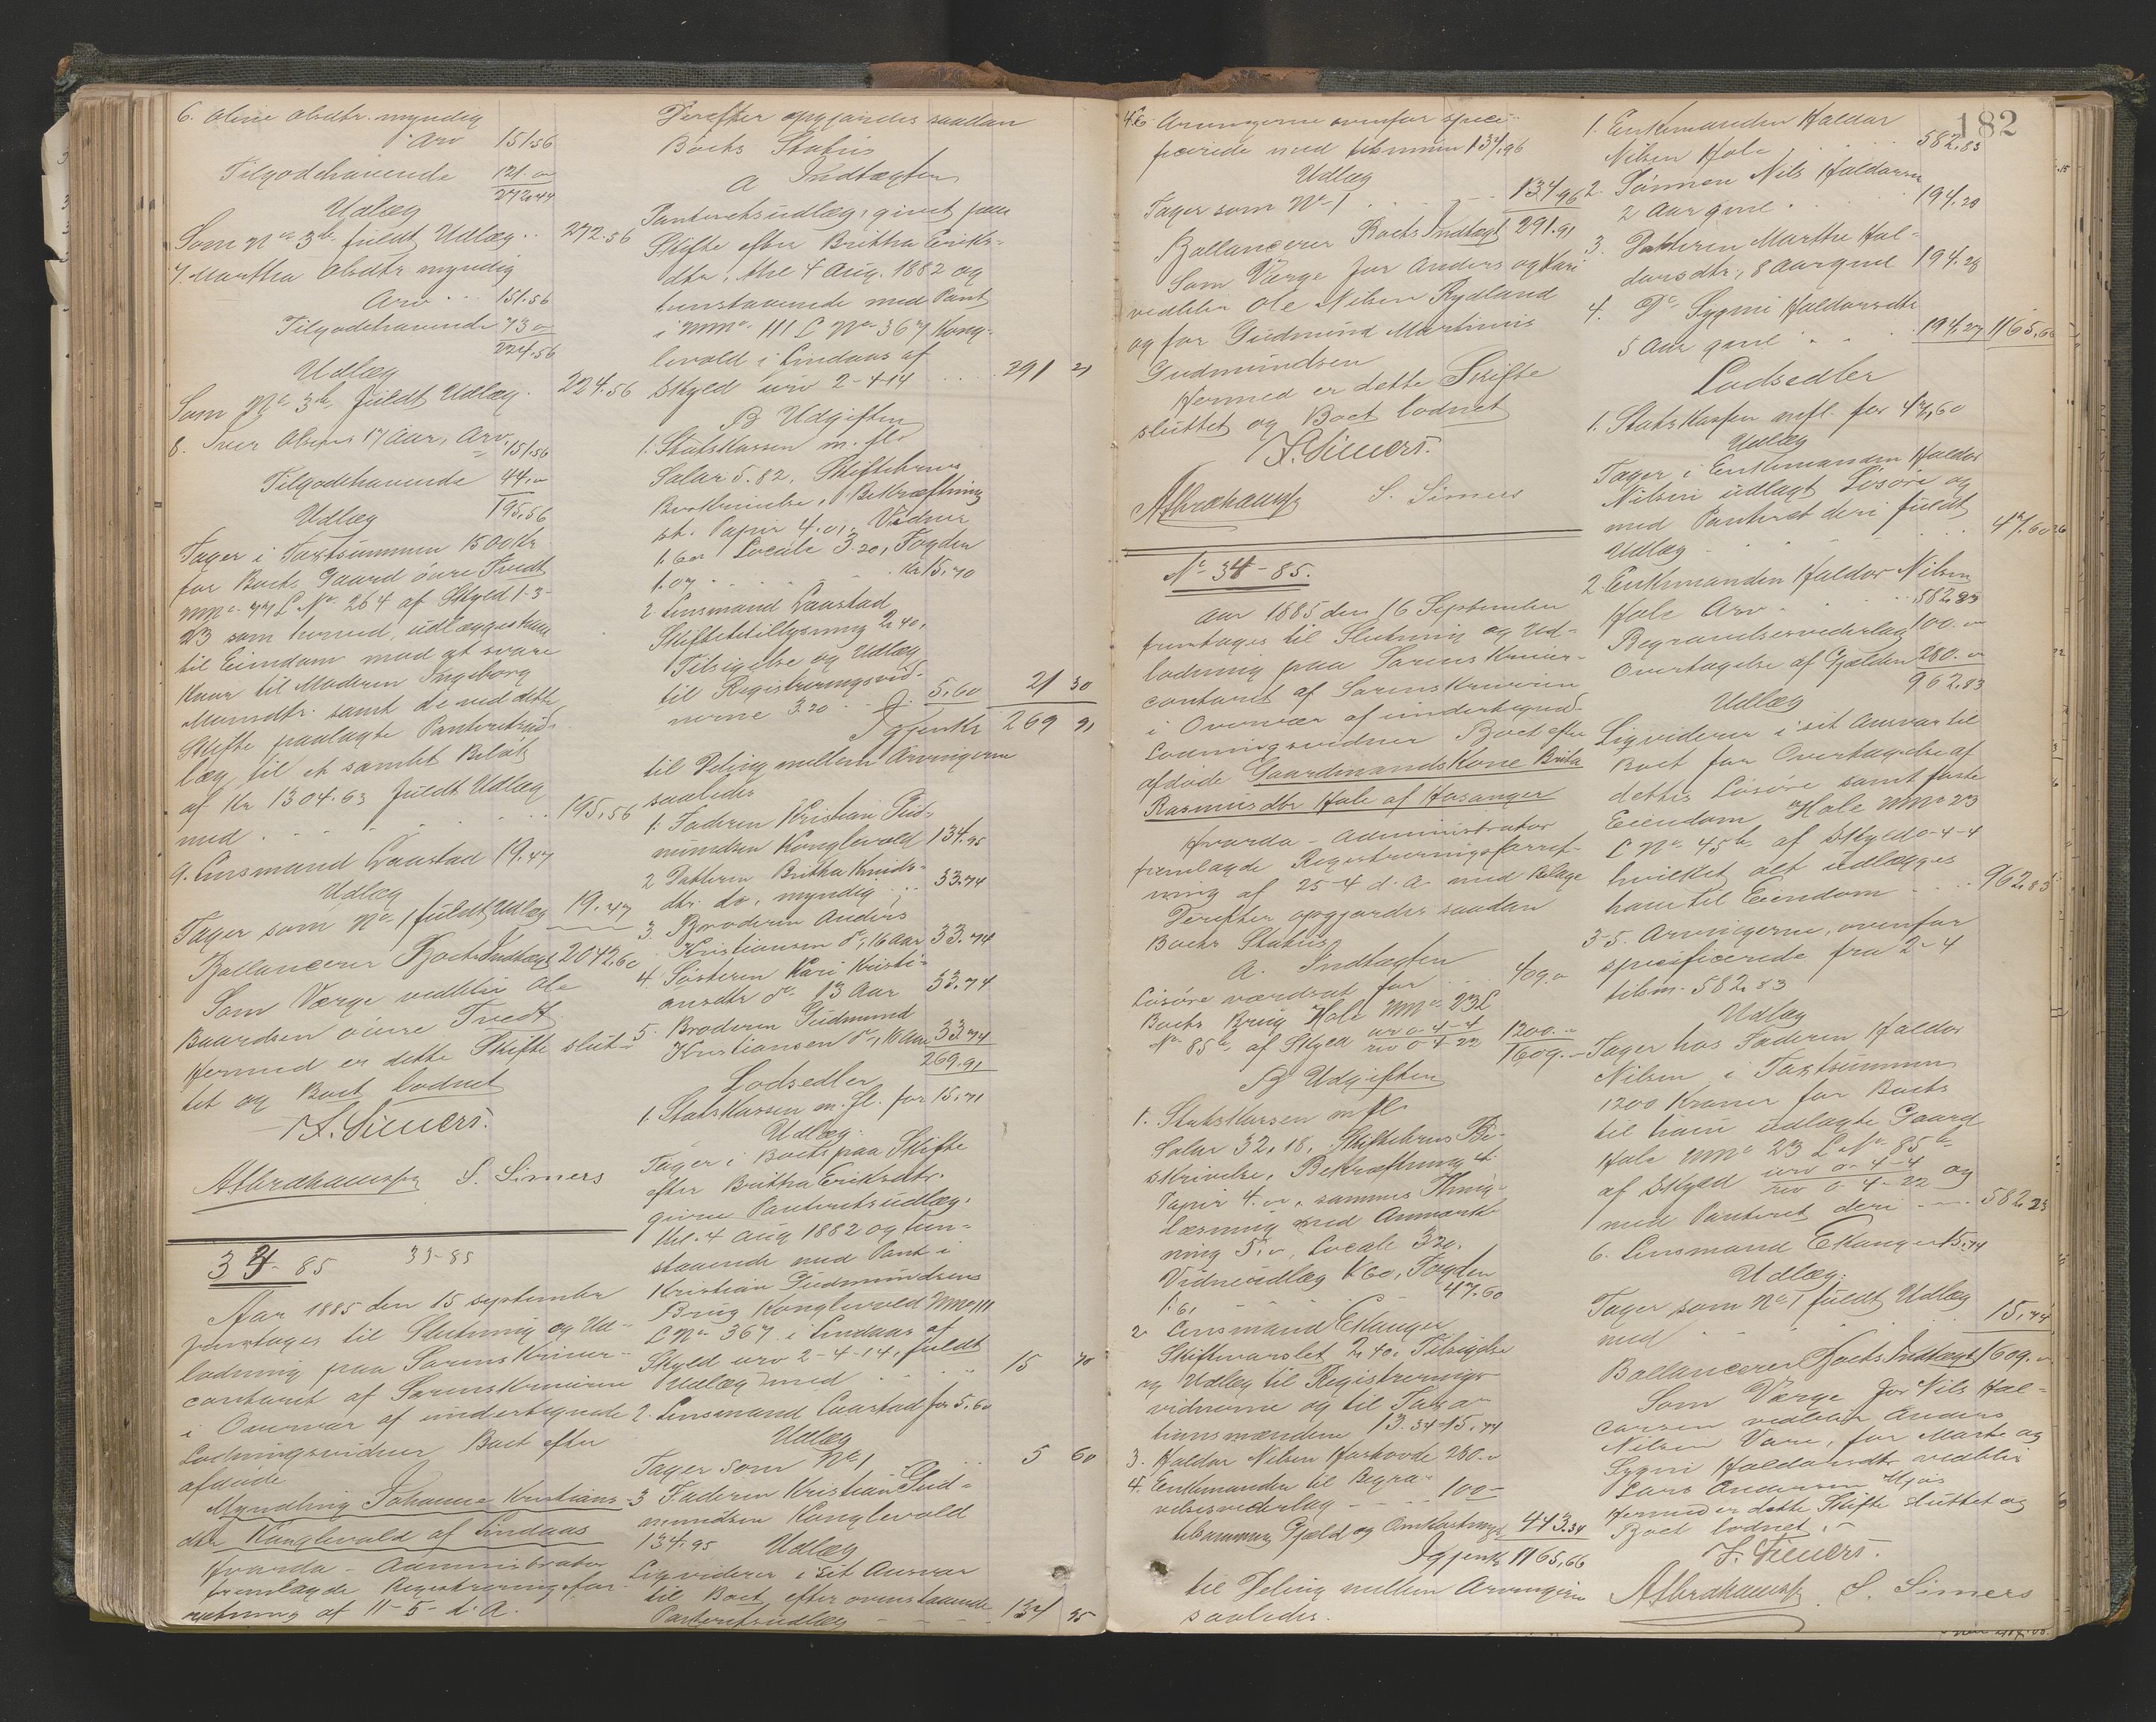 6. Oline Olsdtr. myndig
Arv 151.56
Tilgodehavende 121.00
272.44
Udlæg
Som No 3 b. fuldt Udlæg .. 272.56
7. Martha Olsdtr myndig
Arv ... 151.56
Tilgodehavende 73.00
224.56
Udlæg
Som No 3 b. fuldt Udlæg . 224.56
8. Iver Olsen 17 Aar, Arv. 151.56
Tilgodehavende 44.00
Udlæg 195.56
Tager i Taxtsummen 1500 Kr
for Boets Gaard övre Tvedt
MNo 77 L No 264 af Skyld 1-3-
23 som herved udlægges ham
til Eiendom mod at svare
Kaar til Moderen Ingeborg
samt de ved dette
Skifte paalagte Panteretsud-
læg til et samlet Beløb
af Kr 1304.63 fuldt Udlæg
med . . . . 195.56
9. Lensmand Laastad 19.47
Udlæg
Tager som No 1 fuldt Udlæg 19.47
Ballancerer Boets Indtægt 2042.60
Som Værge vedbliver Ole
Baardsen övre Tvedt.
Hermed er dette Skifte slut-
tet og Boet lodnet
A. Sievers.
Abrahamsen S. Simers
34-85 33-85
Aar 1885 den 15 september
foretages til Slutning og Ud-
lodning paa Sorenskriver-
contoret af Sorenskriveren
i Overvær af undertegnede
Lodningsvidner Boet efter
afdöde
Myndling Johanna Kristians-
dtr Konglevold af Lindaas
Hvorda - Administrator
fremlagde Registreringsfor-
retning af 11-5- d. A.
Derefter opgjordes saadan
Boets Status
A Indtægten
Panteretsudlæg, givet paa
Skifte efter Britha Eriks-
dtr, thl 4 Aug. 1882 og
henstaaende med Pant
i MNo 111 L No 367 Kong-
levold i Lindaas af
Skyld urv 2-4-14 .... 291 21
B Udgiften
1. Statskassen m. fl.
Salær 5.82, Skiftebrevs
Beskrivelse, Bekræftning
st. Papir 4.01, Vidner
1.60 Locale 3.20, Fogden
1.07 . . . . Kr 15.70
2. Lensmand Laastad
Skiftetstillysning 2.40,
Tilsigelse og Udlæg
til Registreringsvid-
nerne 3.20 .. 5.60 21 30
Igjen Kr 269 91
til Deling mellem Arvingerne
saaledes
1. Faderen Kristian Gud-
mundsen Konglevold 134.95
2 Datteren Britha Knuds-
dtr do, myndig .. 33.74
3. Broderen Anders
Kristiansen do, 16 Aar 33.74
4. Søsteren Kari Kristi-
ansdtr do 13 Aar 33.74
5. Broderen Gudmund
Kristiansen do, 10 Aar 33.74
269.91
Lodsedler
1. Statskassen m. fl. for 15.71
Udlæg.
Tager i Boets paa Skifte
efter Britha Eriksdtr.
givne Panteretsudlæg,
thl. 4 Aug 1882 og hen-
staaende med Pant i
Kristian Gudmundsens
Brug Konglevold MNo 111
L No 367 i Lindaas af
Skyld urv 2-4-14, fuldt
Udlæg med . . . 15 70
2. Lensmand Laastad for 5.60
Udlæg
Tager som No 1 5 60
3 Faderen Kristian Gud-
mundsen Konglevold
134.95 Udlæg
Ligviderer i sit Ansvar
til Boet efter ovenstaaende
Panteretsudlæg - - - 134 95
182
4-6 Arvingerne ovenfor speci-
ficerede med tilsammen 134.96
Udlæg
Tager som No 1 . . . 134.96
Ballancerer Boets Indtægt 291.91
Som Værge for Anders og Kari
vedbliver Ole Nilsen Rydland
og for Gudmund Martinus
Gudmundsen
Hermed er dette Skifte
sluttet og Boet lodnet
A. Sievers.
Abrahamsen S. Simers
No 34-85.
Aar 1885 den 16 September
foretages til Slutning og Ud-
lodning paa Sorenskriver-
contoret af Sorenskriveren
i Overvær af undertegnede
Lodningsvidner Boet efter
afdöde Gaardmandskone Brita
Rasmusdtr Hole af Hosanger
Hvorda - Administrator
fremlagde Registreringsforret-
ning af 25-4 d. A. med Bilage
Derefter opgjordes saadan
Boets Status
A. Indtægten
Lösöre værdsat for .. 409.00
Boets Brug Hole MNo 23 L
No 85 b, af Skyld urv 0-4-4
rev 0-4-22 1200.00
1609.-
B Udgiften
1. Statskassen m fl.
Salær 32.18, Skiftebrevs Be-
skrivelse, Bekræftning 4
Papir 4.00, sammes Thing-
læsning med Anmærk-
ning 5.00, Locale 3.20.
Vidneudlæg 1.60, Fogden
1.61 47.60
2. Lensmand Ekanger
Skiftevarslet 2.40, Tilsigelse
og Udlæg til Registrerings-
vidnerne og til Taxa-
tionsmændene 13.34 15.74
3. Haldor Nilsen 280.00
4. Enkemanden til Begra-
velsesvederlag - - - 100-
tilsammen Gjæld og Omkostninger 443.34
Igjen Kr 1165.66
til Deling mellem Arvingerne
saaledes.
1. Enkemanden Haldor
Nilsen Hole . . . . 582.83
2. Sönnen Nils Haldorsen
2 Aar gml. . . . 194.28
3. Datteren Marthe Hal-
dorsdtr, 8 Aar gml 194.28
4. Do Sygni Haldorsdtr
5 Aar gml . . . 194.27 1165.66
Lodsedler
1. Statskassen m fl. for 47.60
Udlæg
Tager i Enkemanden Haldor
Nilsen udlagt Lösöre og
med Panteret deri fuldt
Udlæg . . . . 47.60
2. Enkemanden Haldor Nilsen
Hole Arv . . . 582.83
Begravelsesvederlag 100.00
Overtagelse af Gjælden 280.00
Udlæg 962.83
Ligviderer i sit Ansvar til
Boet for Overtagelse af
dettes Lösöre samt faste
Eiendom Hole MNo 23
L No 85 b. af Skyld 0-4-4
hvilket alt udlægges
ham til Eiendom . . . 962.83
3-5. Arvingerne, ovenfor
specificerede fra 2-4
tilsm. 582.83
Udlæg
Tager hos Faderen Haldor
Nilsen i Taxtsummen
1200 Kroner for Boets
til ham udlagte Gaard
Hole MNo 23 L No 85 b
af Skyld urv 0-4-4
rev 0-4-22 og
med Panteret deri .... 582.83
6. Lensmand Ekanger 15.74
Udlæg.
Tager som No 1 fuldt Udlæg
med . . . . 15.74
Ballancerer Boets Indtægt 1609.00
Som Værge for Nils Hal-
dorsen vedbliver Anders
Nilsen , for Marte og
Sygni Haldorsdtr vedbliver
Lars Andersen Mjös
Hermed er dette Skifte sluttet og
Boet lodnet.
A. Sievers.
Abrahamsen S. Simers